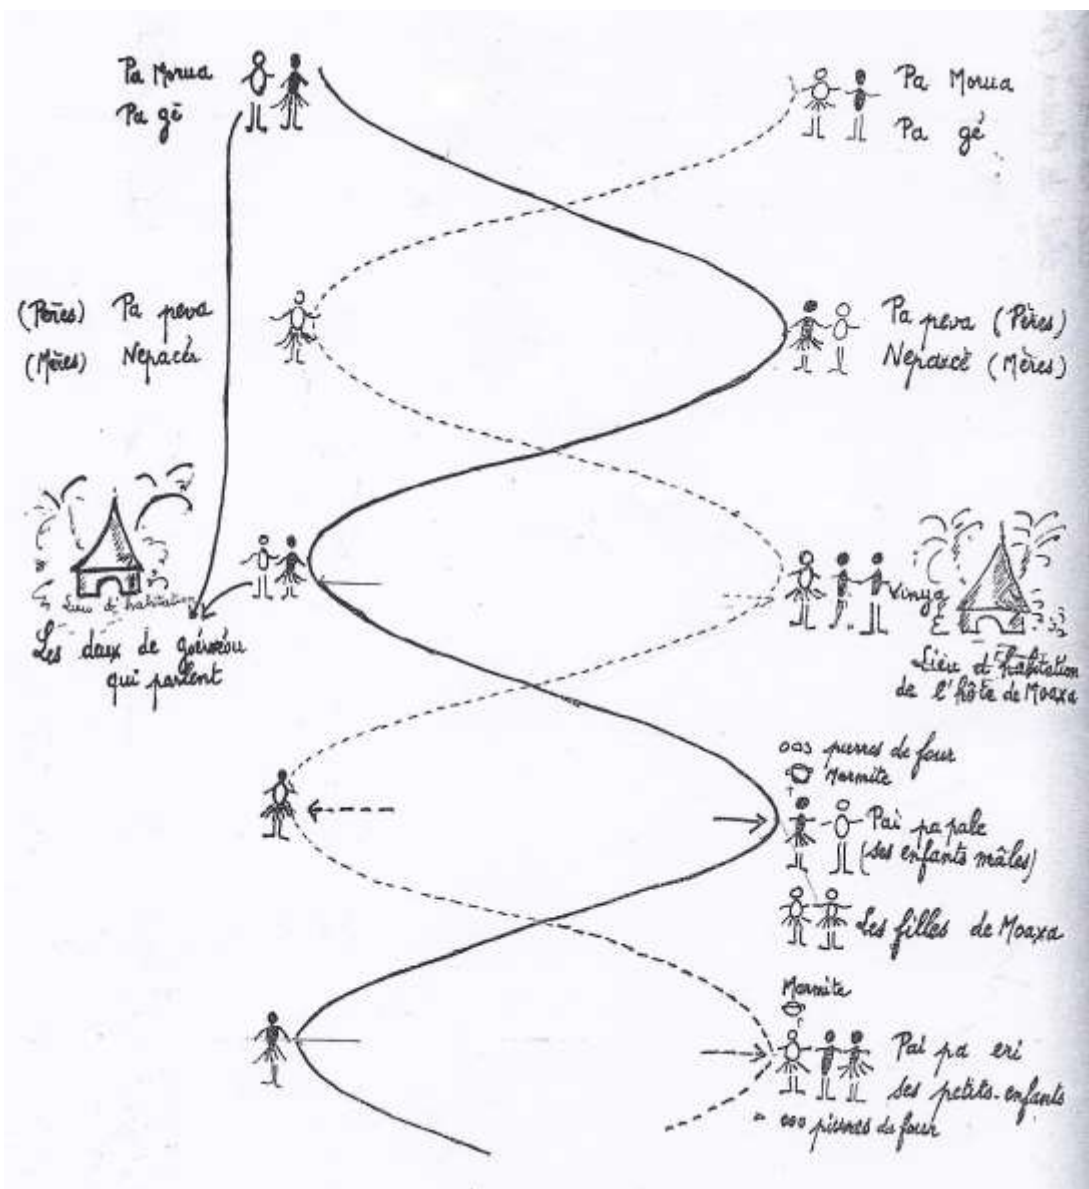 Pa Morua
Pa gé
Pa Morua
Pa gé
(Pères) Pa peva
(Mères) Nepacè
Pa peva (Pères)
Nepaxcè (Mères)
Lieu d'habitation
Les deux de
qui partent
Vinya
Lieu d'habitation
de l'hôte de Moaxa
pierres de four
Marmite
Pai pa pale
(ses enfants mâles)
Les filles de Moaxa
Marmite
Pai pa eri
ses petits-enfants
pierres de four